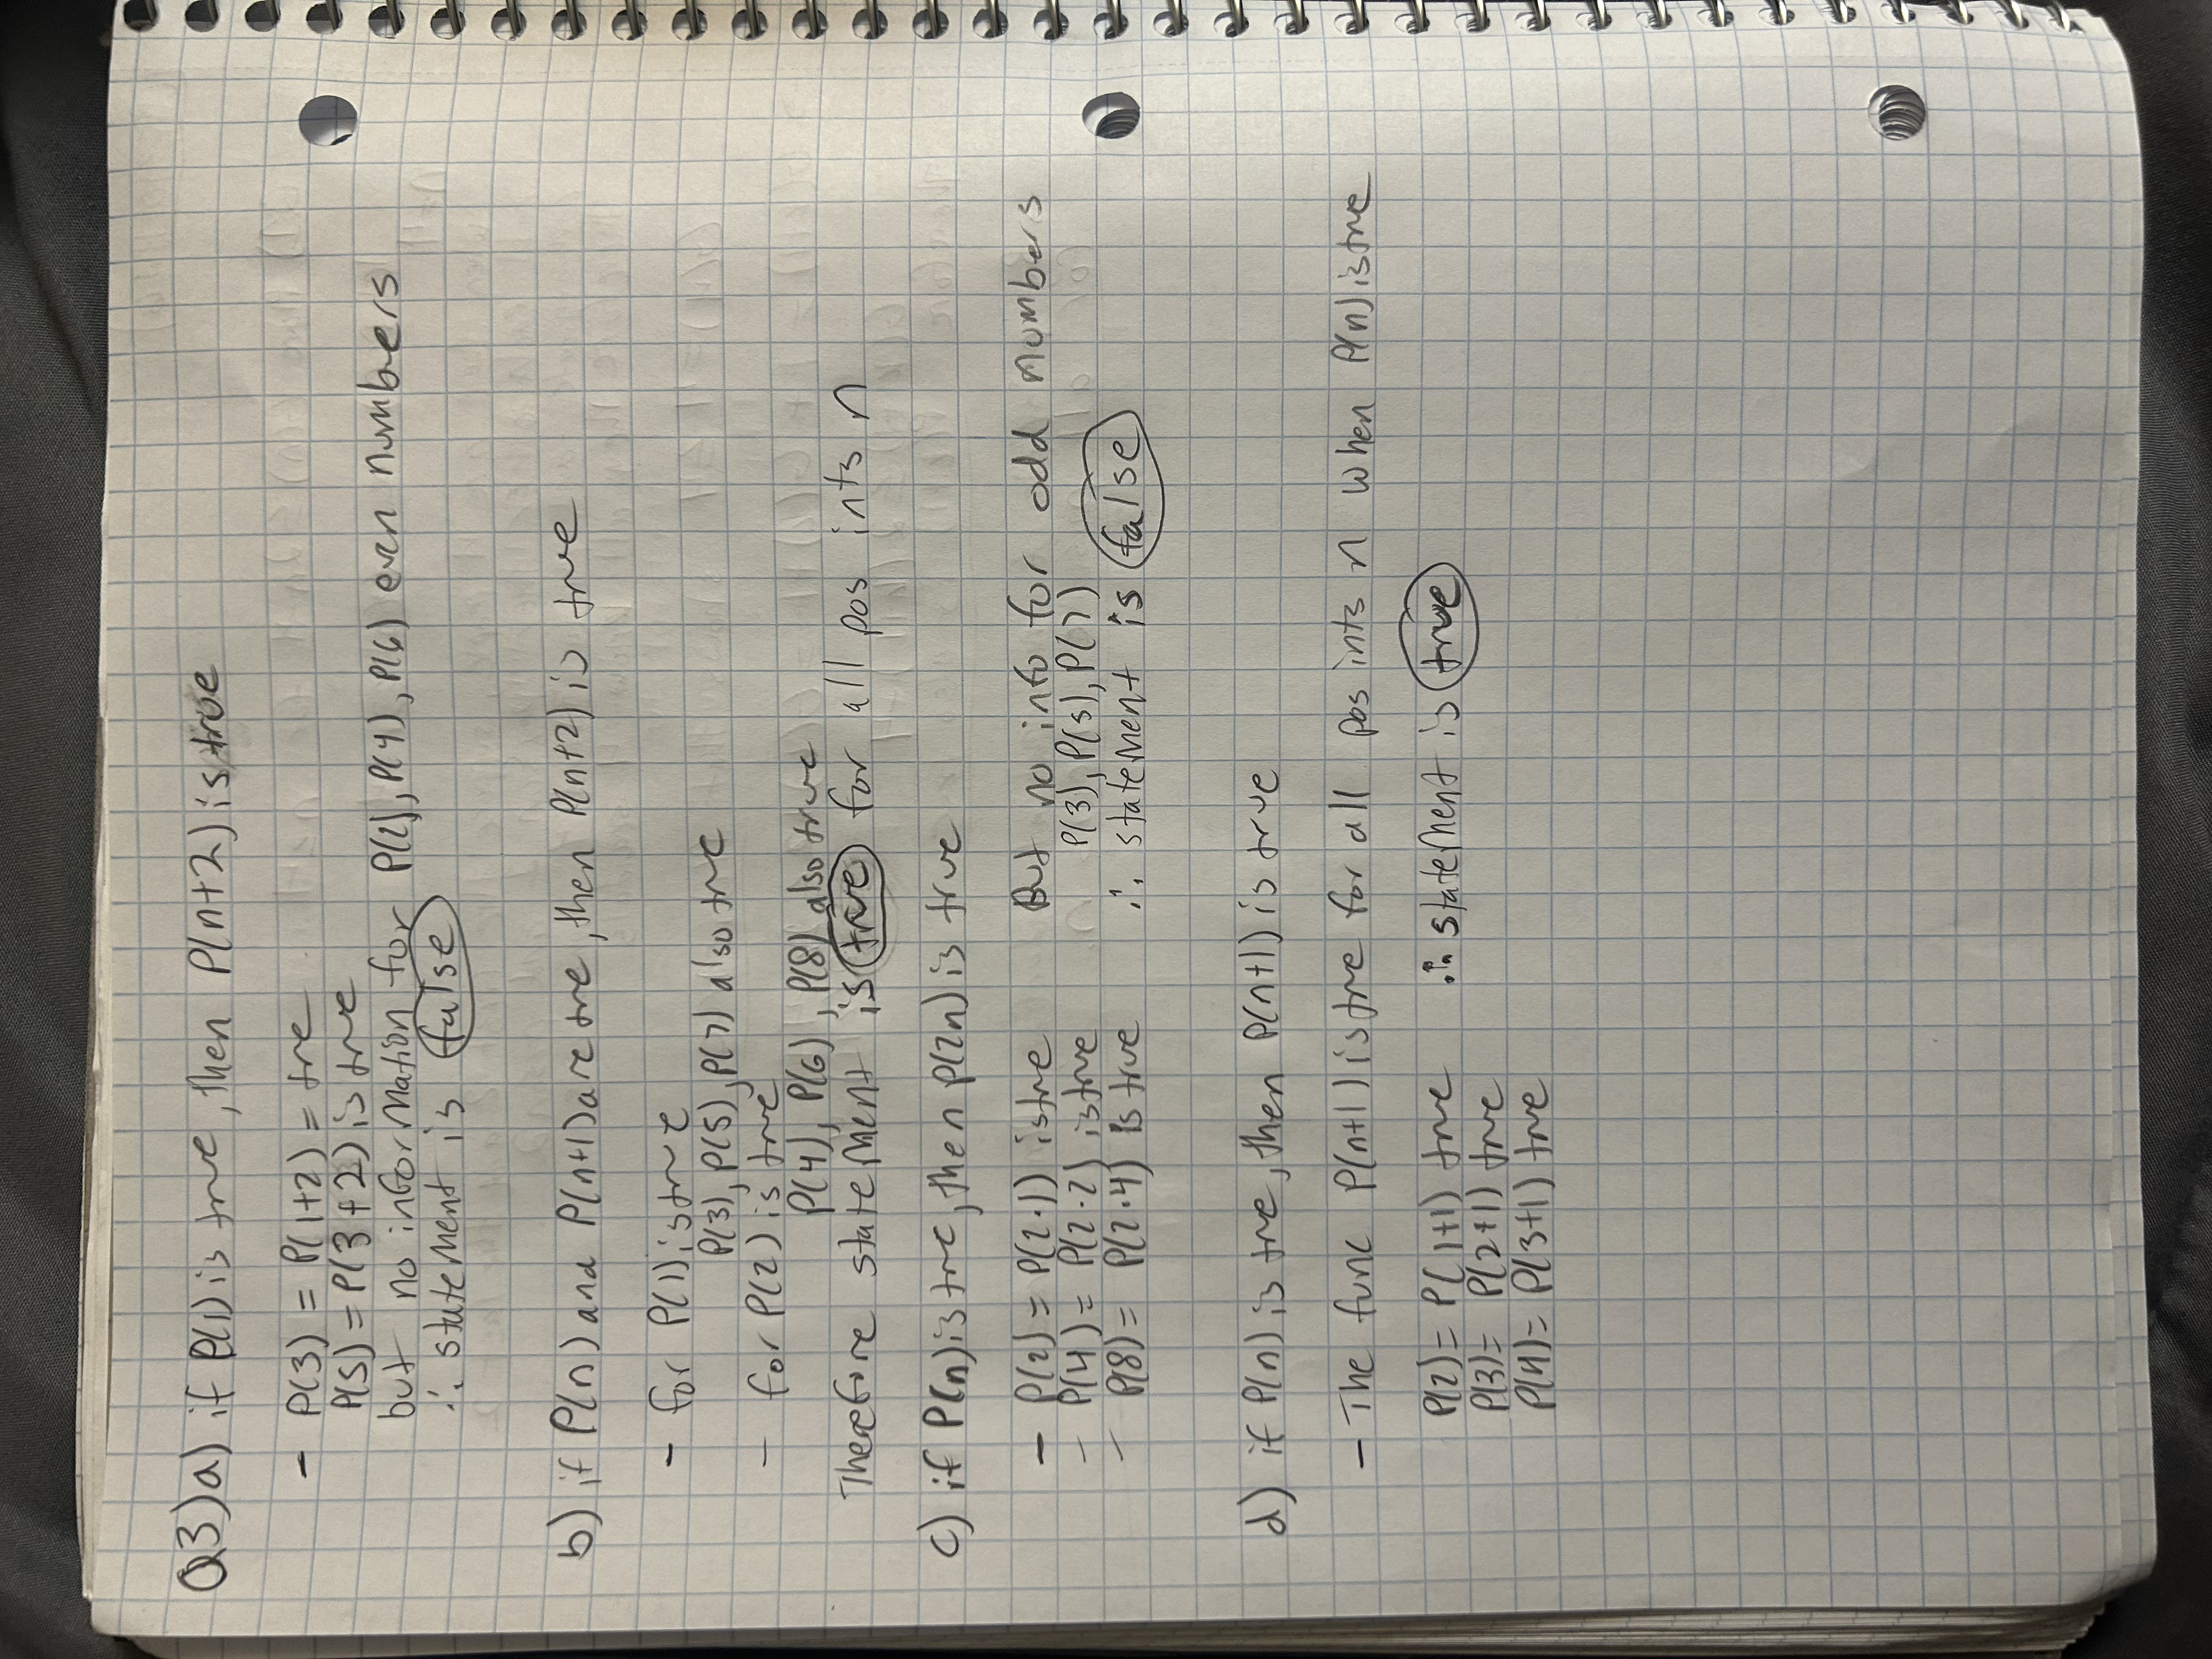 Q3) a) if P(1) is true, then P(n+2) is true
- P(3) = P(1+2) = tre
P(5) = P(3+2) is true
but no information for P(2), P(4), P(6) even numbers
∴ statement is false
b) if P(n) and P(n+1) are tre, then P(n+2) is true
- for P(1) is true
P(3), P(5), P(7) also true
- for P(2) is true
P(4), P(6), P(8) also true
Therefore statement is true for all pos ints n
c) if P(n) is tre, then P(2n) is true
- P(2) = P(2·1) is tre But no info for odd numbers
- P(4) = P(2·2) is true P(3), P(5), P(7)
- P(8) = P(2·4) is true ∴ statement is false
d) if P(n) is tre, then P(n+1) is true
- The func P(n+1) is tre for all pos ints n when P(n) is tre
P(2) = P(1+1) true ∴ statement is true
P(3) = P(2+1) true
P(4) = P(3+1) true